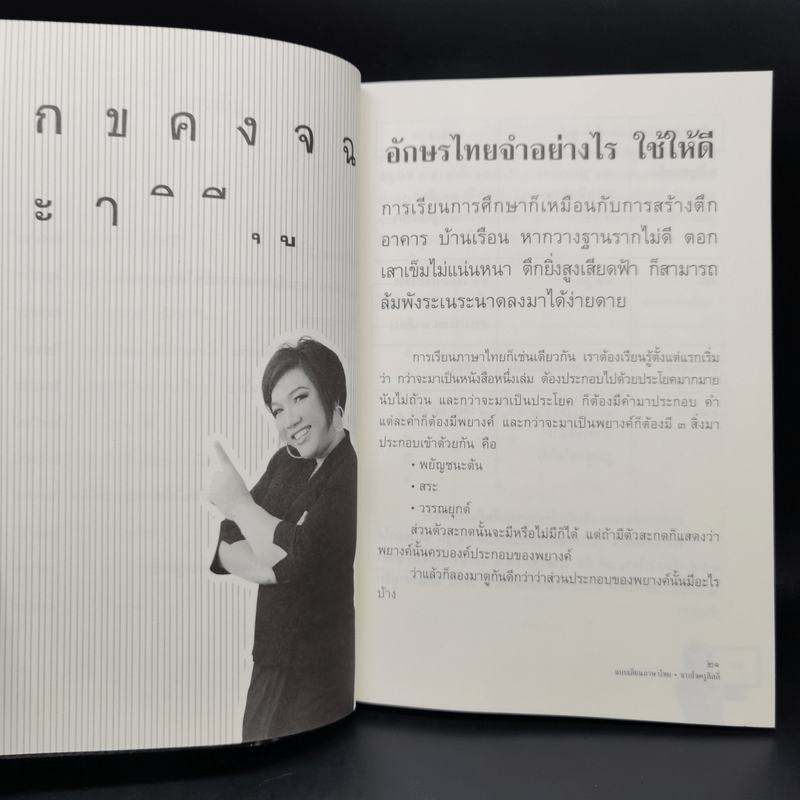 ก ข ค ง จ ฉ
ะ า ิ ี ุ ู
อักษรไทยจำอย่างไร ใช้ให้ดี
การเรียนการศึกษาก็เหมือนกับการสร้างตึก
อาคาร บ้านเรือน หากวางฐานรากไม่ดี ตอก
เสาเข็มไม่แน่นหนา ตึกยิ่งสูงเสียดฟ้า ก็สามารถ
ล้มพังระเนระนาดลงมาได้ง่ายดาย
การเรียนภาษาไทยก็เช่นเดียวกัน เราต้องเรียนรู้ตั้งแต่แรกเริ่ม
ว่า กว่าจะมาเป็นหนังสือหนึ่งเล่ม ต้องประกอบไปด้วยประโยคมากมาย
นับไม่ถ้วน และกว่าจะมาเป็นประโยค ก็ต้องมีคำมาประกอบ คำ
แต่ละคำก็ต้องมีพยางค์ และกว่าจะมาเป็นพยางค์ก็ต้องมี ๓ สิ่งมา
ประกอบเข้าด้วยกัน คือ
• พยัญชนะต้น
• สระ
• วรรณยุกต์
ส่วนตัวสะกดนั้นจะมีหรือไม่มีก็ได้ แต่ถ้ามีตัวสะกดก็แสดงว่า
พยางค์นั้นครบองค์ประกอบของพยางค์
ว่าแล้วก็ลองมาดูกันดีกว่าว่าส่วนประกอบของพยางค์นั้นมีอะไร
บ้าง
๒๑
แบบเรียนภาษาไทย • จากใจครูลิลลี่